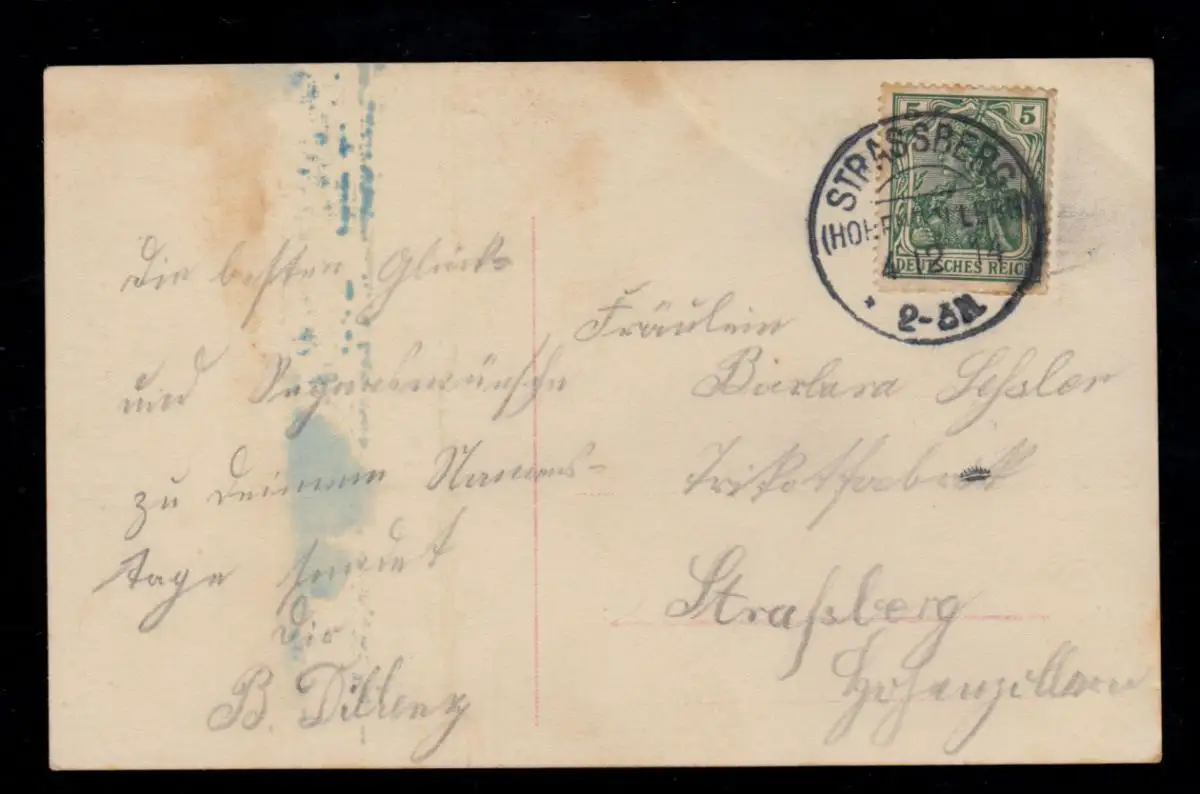 Die besten Glück-
und Segenswünsche
zu Deinem Namens-
tage sendet
Dir
B.
5 5
DEUTSCHES REICH
STRASSBERG
(HOHENZOLLERN)
4 12 14
2-3N
Fräulein
Barbara
Trikotfabrik
Straßberg
Hohenzollern